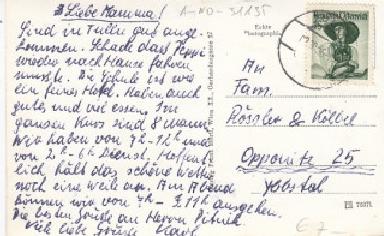 Liebe Mamma!
A-NÖ-31135
Sind in Tulln gut ange-
kommen. Schade dass Peppi
wieder nach Hause fahren
musste. Die Schule ist wie
ein feines Hotel. Haben auch
gutes und viel essen. Im
ganzen Kurs sind 8 Mann.
Wir haben von 7h-12h und
von 2h-6h Dienst. Hoffent-
lich hält das schöne Wetter
noch eine weile an. Am Abend
können wir von 7h- 11h ausgehen.
Die besten Grüsse an Herrn
Viel liebe Grüsse
Echte
Photographie
An
Fam.
Rössler &
Opponitz 25
Ybbstal